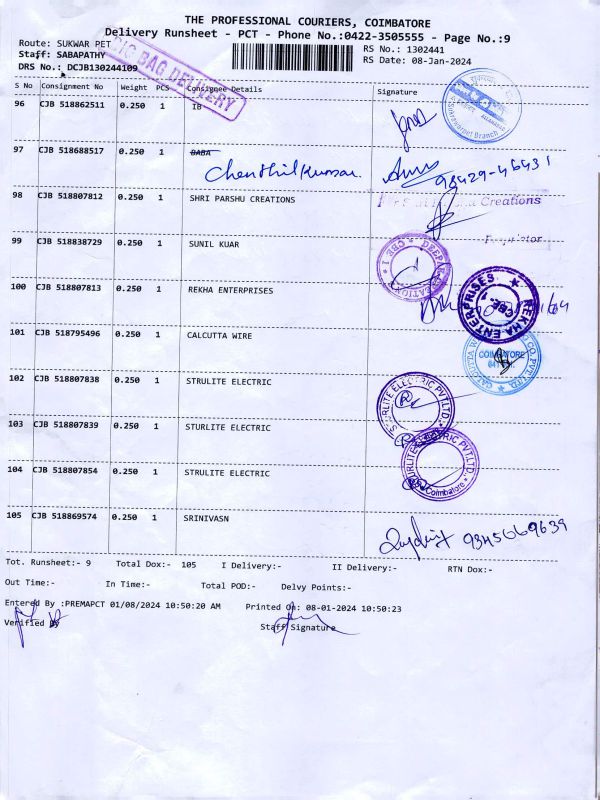 THE PROFESSIONAL COURIERS, COIMBATORE
Delivery Runsheet - PCT - Phone No.:0422-3505555 - Page No.:9
Route: SUKWAR PET
Staff: SABAPATHY
DRS No.: DCJB130244109
RS No.: 1302441
RS Date: 08-Jan-2024
BIG BAG DELIVERY
S No Consignment No Weight PCS Consignee Details Signature
96 CJB 518862511 0.250 1 IB
97 CJB 518688517 0.250 1 BABA
Chenthilkumar. 98429-46431
98 CJB 518807812 0.250 1 SHRI PARSHU CREATIONS
Creations
99 CJB 518838729 0.250 1 SUNIL KUAR
100 CJB 518807813 0.250 1 REKHA ENTERPRISES
REKHA ENTERPRISES CBE-1
101 CJB 518795496 0.250 1 CALCUTTA WIRE
CALCUTTA CO. PVT. LTD. COIMBATORE
102 CJB 518807838 0.250 1 STRULITE ELECTRIC
STURLITE ELECTRIC PVT.LTD.
103 CJB 518807839 0.250 1 STURLITE ELECTRIC
104 CJB 518807854 0.250 1 STRULITE ELECTRIC
STURLITE ELECTRIC PVT.LTD. Coimbatore
105 CJB 518869574 0.250 1 SRINIVASN
9345669639
Tot. Runsheet:- 9 Total Dox:- 105 I Delivery:- II Delivery:- RTN Dox:-
Out Time:- In Time:- Total POD:- Delvy Points:-
Entered By :PREMAPCT 01/08/2024 10:50:20 AM Printed On: 08-01-2024 10:50:23
Verified By Staff Signature